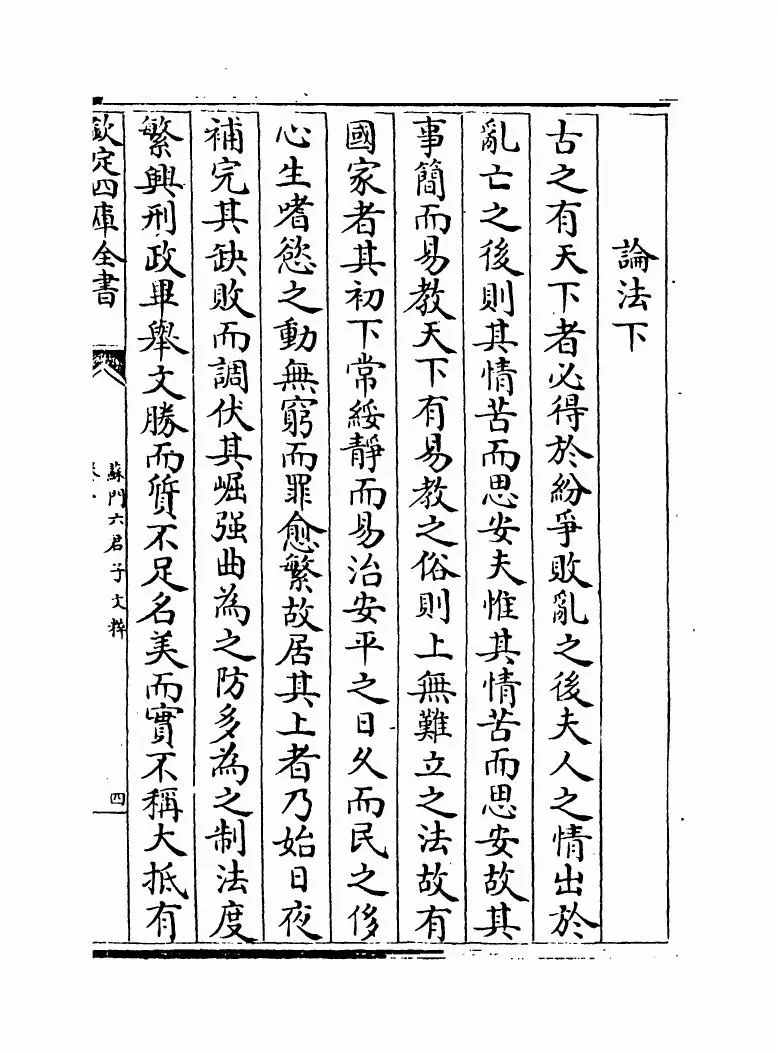 論法下
古之有天下者必得於紛爭敗亂之後夫人之情出於
亂亡之後則其情苦而思安夫惟其情苦而思安故其
事簡而易教天下有易教之俗則上無難立之法故有
國家者其初下常綏靜而易治安平之日久而民之侈
心生嗜慾之動無窮而罪愈繁故居其上者乃始日夜
補完其缺敗而調伏其崛强曲為之防多為之制法度
繁興刑政畢舉文勝而質不足名美而實不稱大抵有
欽定四庫全書
蘇門六君子文粹
四